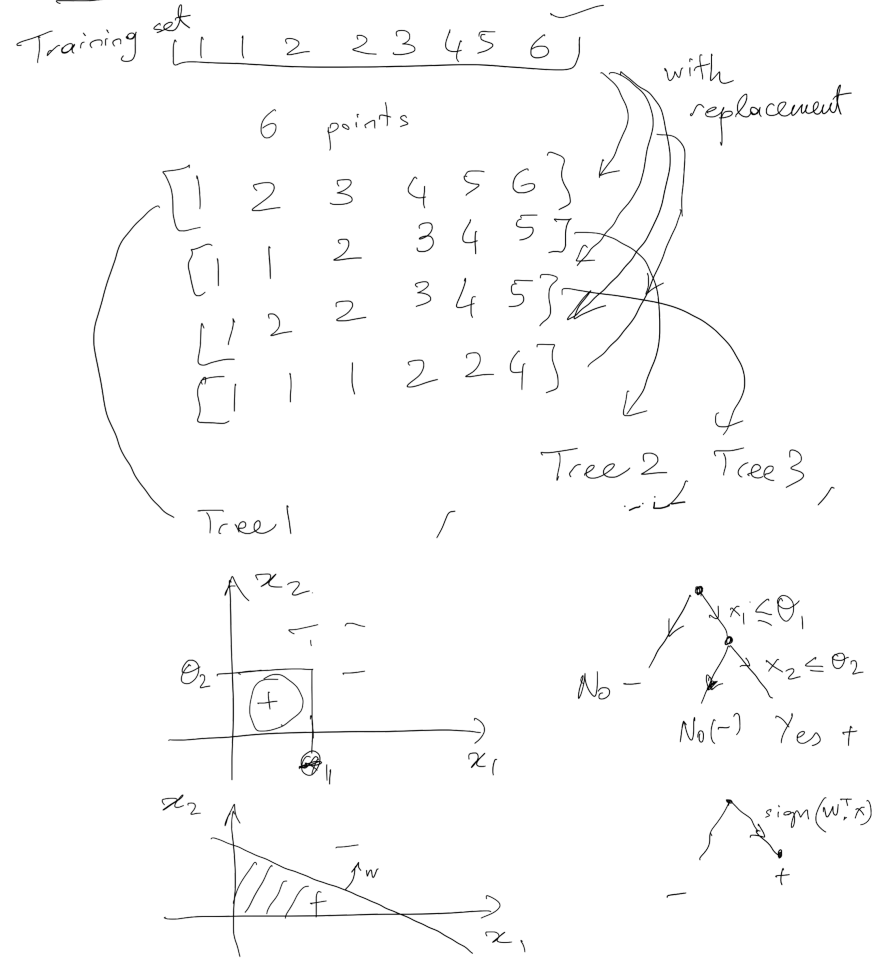 Training set [1 1 2 2 3 4 5 6]
with
replacement
6 points
[1 2 3 4 5 6]
[1 1 2 3 4 5]
[1 2 2 3 4 5]
[1 1 1 2 2 4]
Tree 2, Tree 3,
Tree 1 ,
x₂
- -
θ₂ -
+
x₁
x₁ ≤ θ₁
x₂ ≤ θ₂
No -
No (-) Yes +
x₂
-
w
+
x₁
sign(wᵀx)
+
-